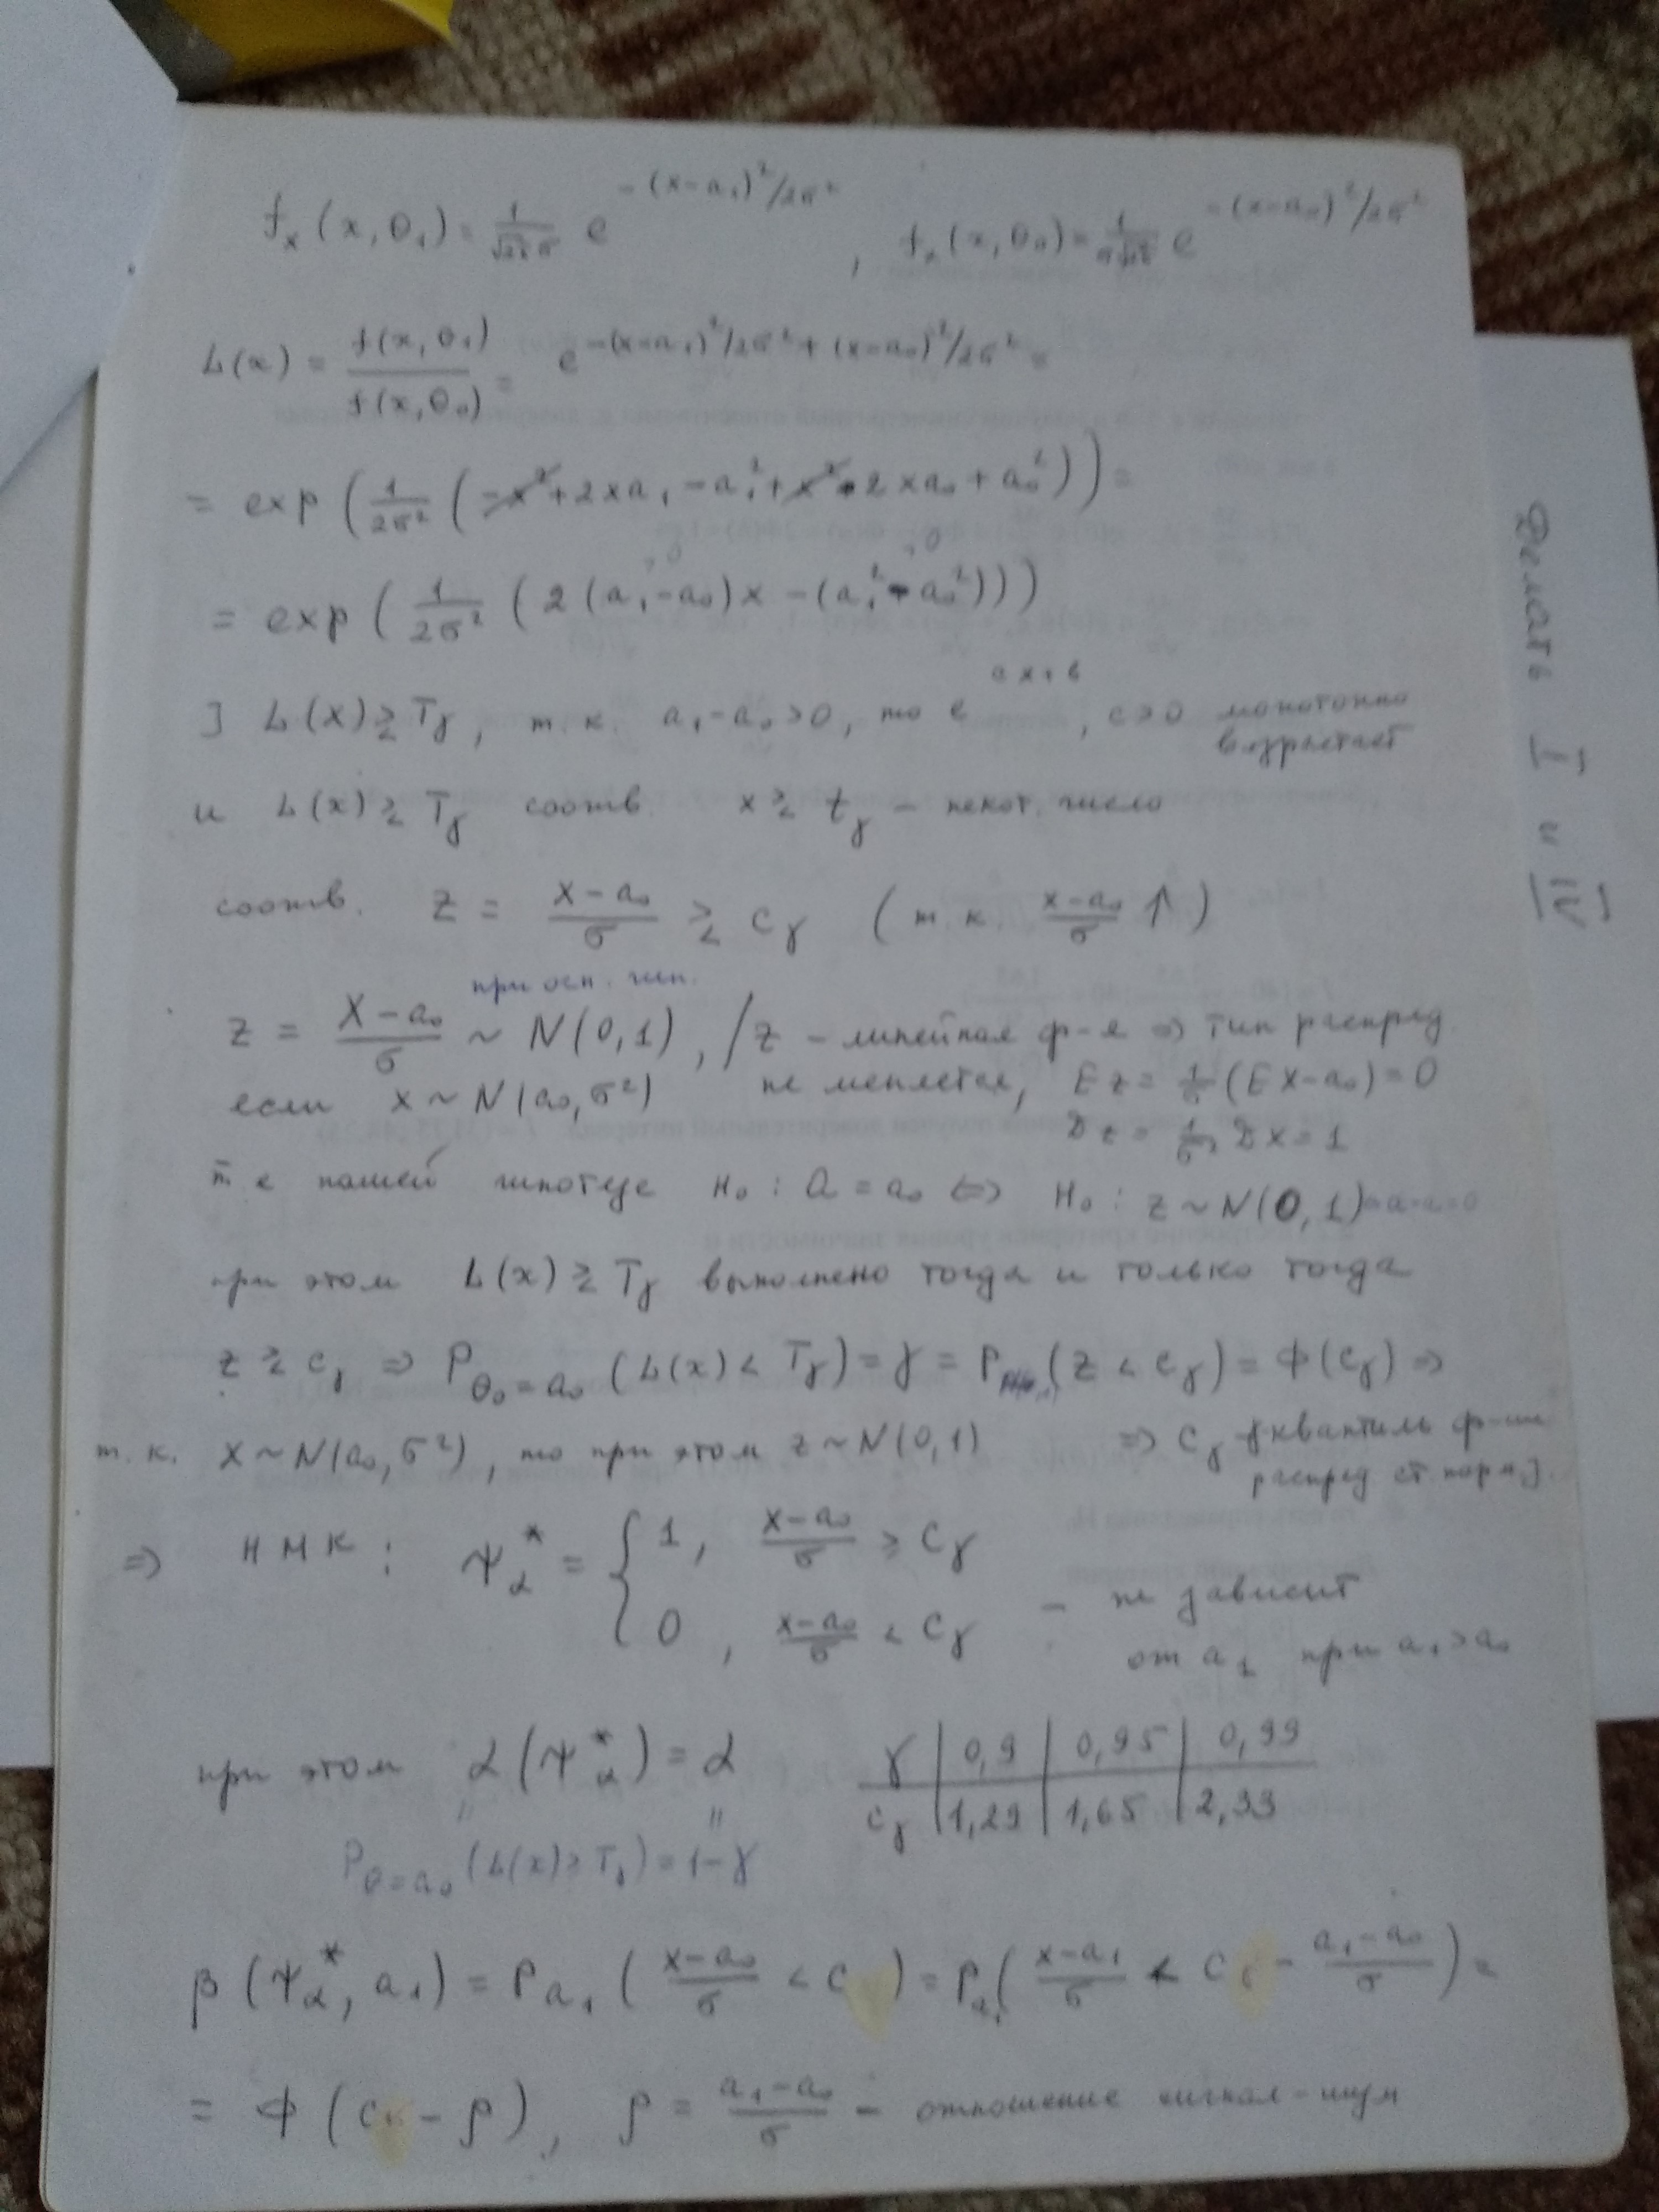 fₓ(x,θ₁) = 1/(√2π σ) e^(-(x-a₁)²/2σ²) , fₓ(x,θ₀) = 1/(σ√2π) e^(-(x-a₀)²/2σ²)
L(x) = f(x,θ₁)/f(x,θ₀) = e^(-(x-a₁)²/2σ² + (x-a₀)²/2σ²) =
= exp(1/2σ² (-x² + 2xa₁ - a₁² + x² - 2xa₀ + a₀²)) =
>0 >0
= exp(1/2σ² (2(a₁-a₀)x - (a₁² - a₀²)))
] L(x) ≥ Tγ, т.к. a₁-a₀>0, то e^(cx+b), c>0 монотонно
возрастает
и L(x) ≥ Tγ соотв. x ≥ tγ – некот. число
соотв. z = (x-a₀)/σ ≥ cγ (т.к. (x-a₀)/σ ↑)
при осн. гип.
z = (X-a₀)/σ ~ N(0,1), / z – линейная ф-я ⇒ тип распред.
если x ~ N(a₀,σ²) не меняется, Ez = 1/σ (EX-a₀) = 0
Dz = 1/σ² DX = 1
т е нашей гипотезе H₀ : a = a₀ ⇔ H₀ : z ~ N(0,1)
при этом L(x) ≥ Tγ выполнено тогда и только тогда
z ≥ cγ ⇒ P_θ₀=a₀ (L(x) < Tγ) = γ = P (z < cγ) = Φ(cγ) ⇒
т.к. X ~ N(a₀,σ²), то при этом z ~ N(0,1) ⇒ cγ - γ квантиль ф-ии
распред ст. норм.]
⇒ НМК : ψ*_α = { 1, (x-a₀)/σ ≥ cγ
0, (x-a₀)/σ < cγ – не зависит
от a₁ при a₁>a₀
при этом α(ψ*_α) = α
γ | 0,9 | 0,95 | 0,99
cγ | 1,29 | 1,65 | 2,33
" "
P_θ=a₀ (L(x) ≥ Tγ) = 1-γ
β(ψ*_α, a₁) = P_a₁ ((x-a₀)/σ < c ) = P_a₁ ((x-a₁)/σ < cγ - (a₁-a₀)/σ) =
= Φ(cγ - ρ), ρ = (a₁-a₀)/σ – отношение сигнал-шум
Делать I = III